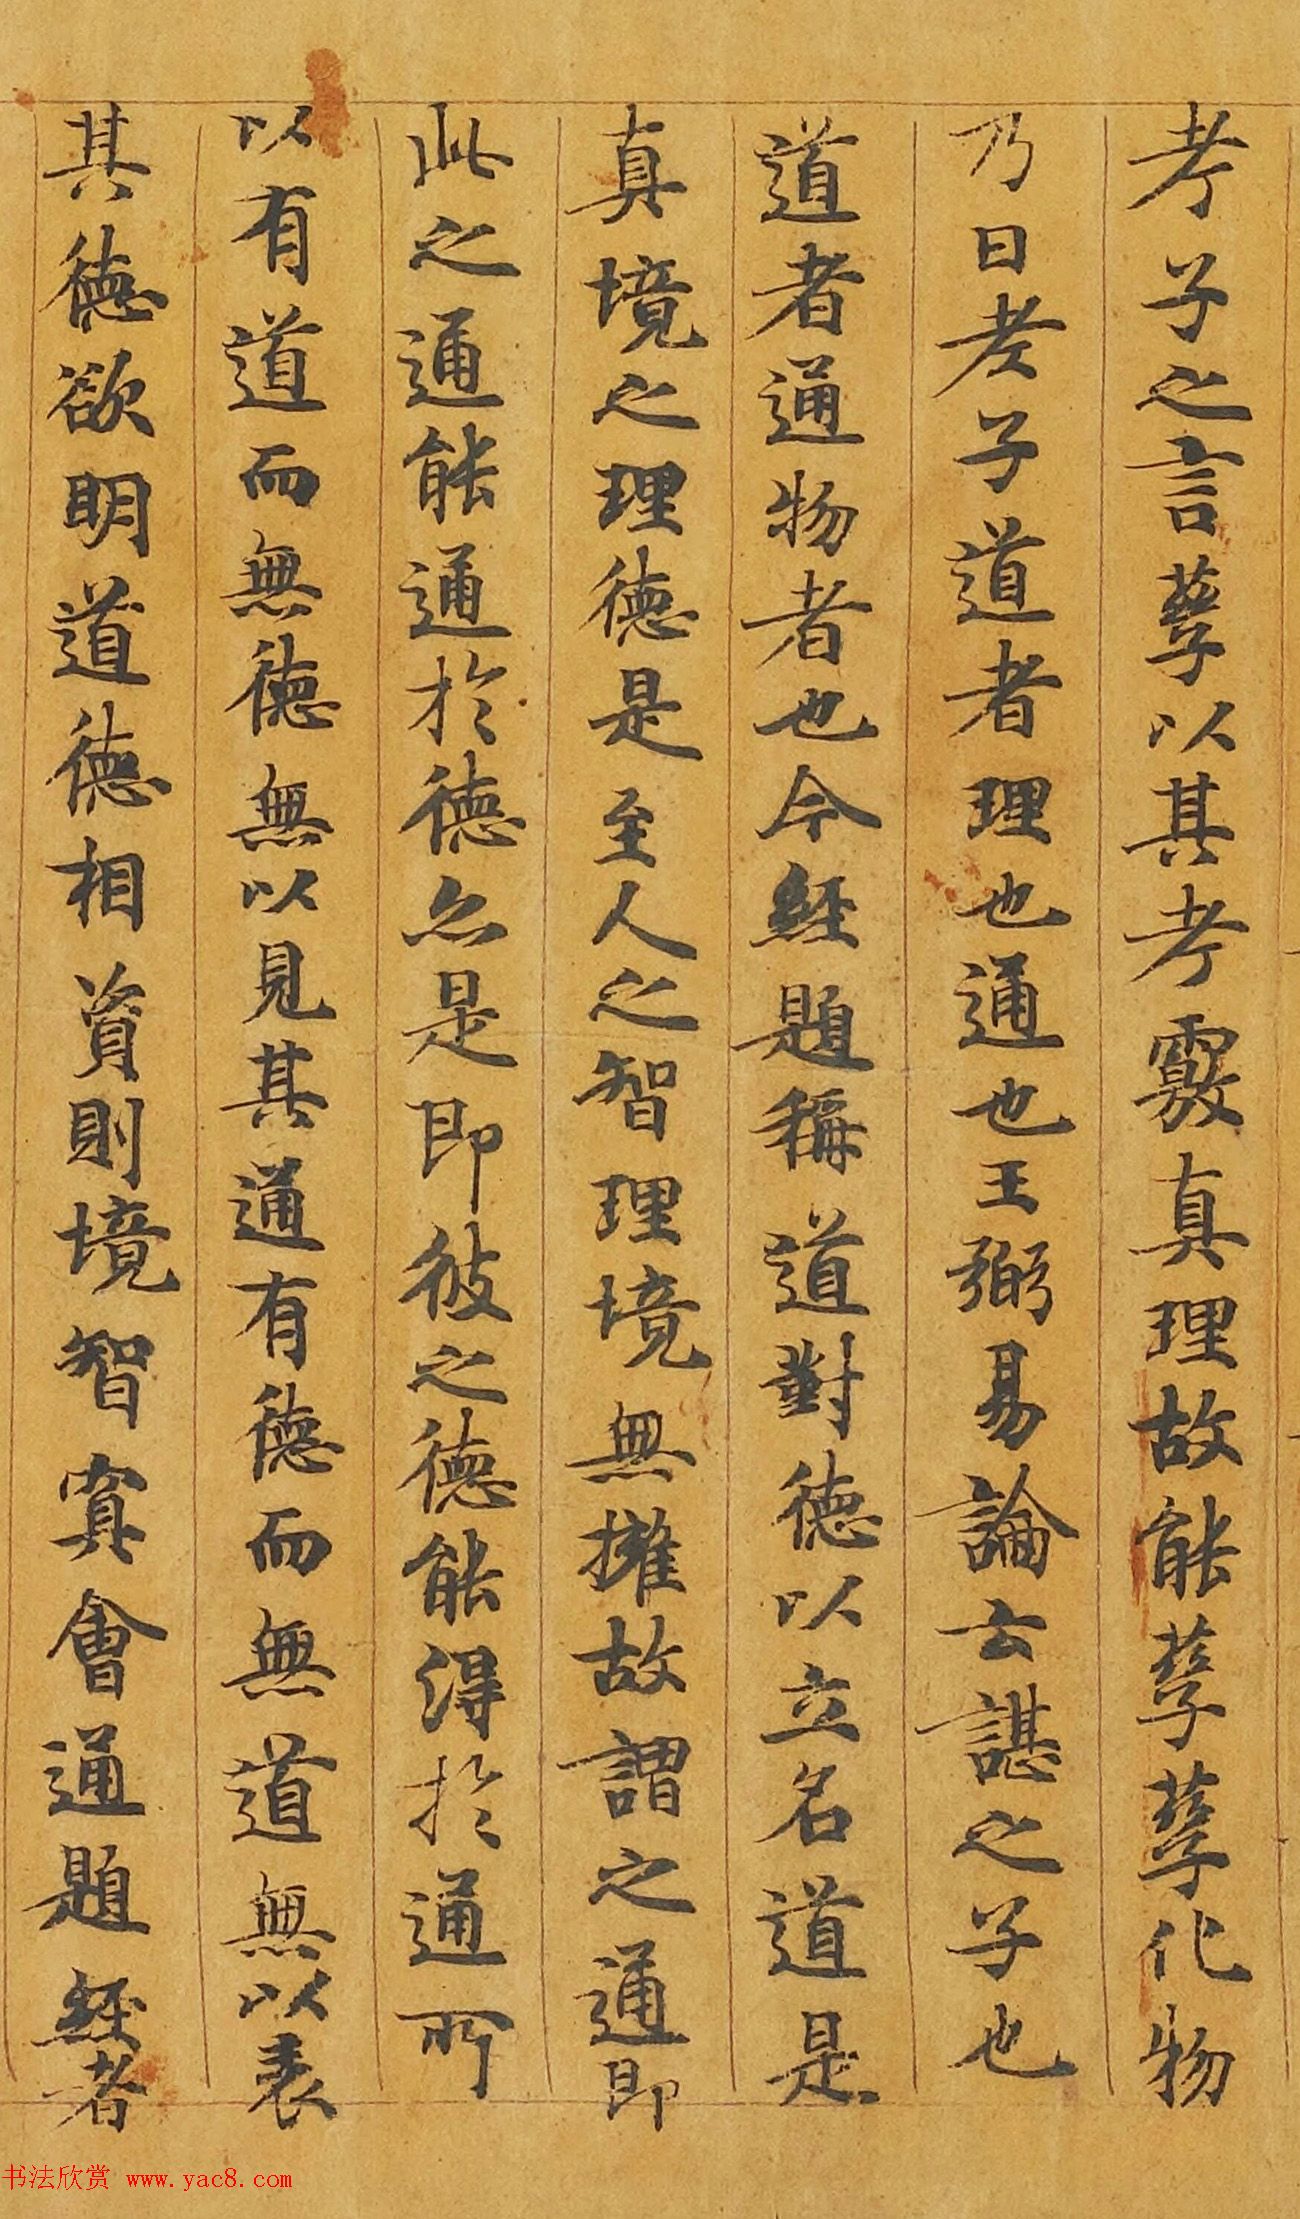 考子之言孳以其考覈真理故能孳孳化物
乃曰老子道者理也通也王弼易論云諶之子也
道者通物者也今經題稱道對德以立名道是
真境之理德是至人之智理境無擁故謂之通即
此之通能通於德亦是即彼之德能得於通所
以有道而無德無以見其通有德而無道無以表
其德欲明道德相資則境智冥會通題經者
书法欣赏 www.yac8.com